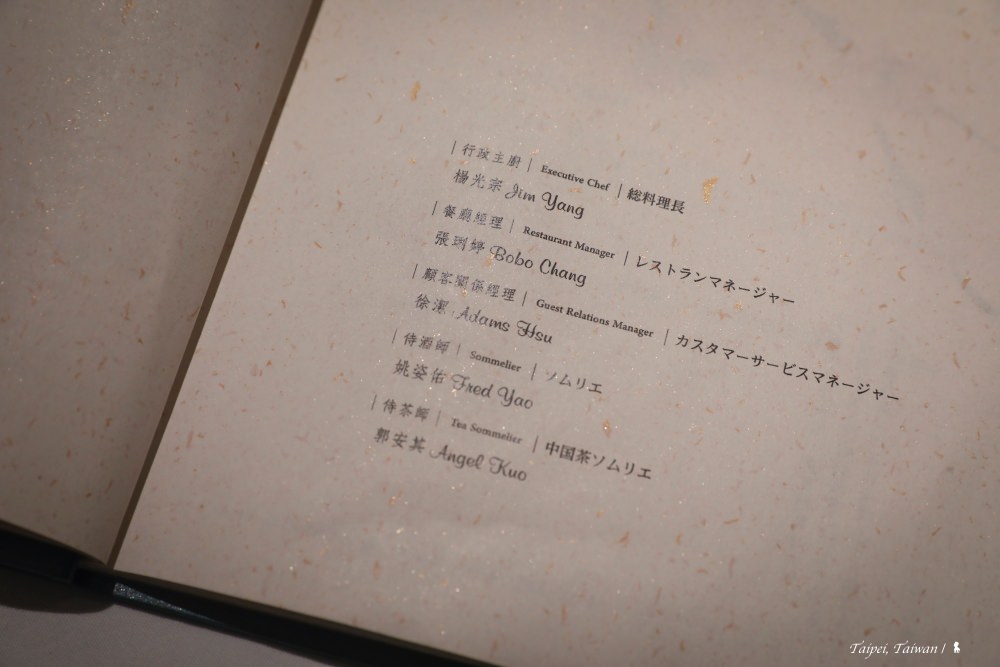 |行政主廚|Executive Chef|総料理長
楊光宗 Jim Yang
|餐廳經理|Restaurant Manager|レストランマネージャー
張琍婷 Bobo Chang
|顧客關係經理|Guest Relations Manager|カスタマーサービスマネージャー
徐潔 Adams Hsu
|侍酒師|Sommelier|ソムリエ
姚姿佑 Fred Yao
|侍茶師|Tea Sommelier|中国茶ソムリエ
郭安其 Angel Kuo
Taipei, Taiwan /